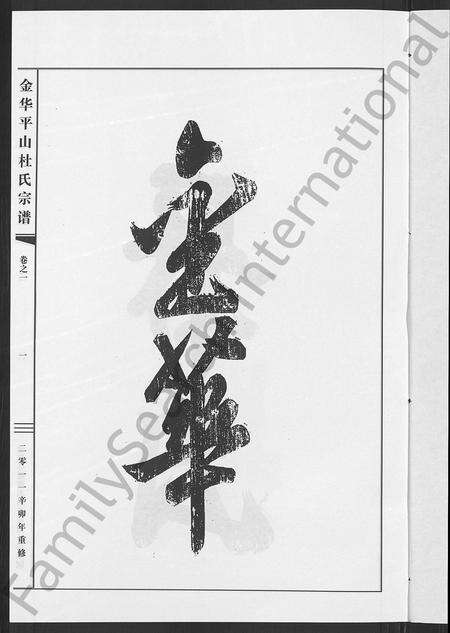 金华平山杜氏宗谱
卷之一
一
二零一一辛卯年重修
華
FamilySearch International